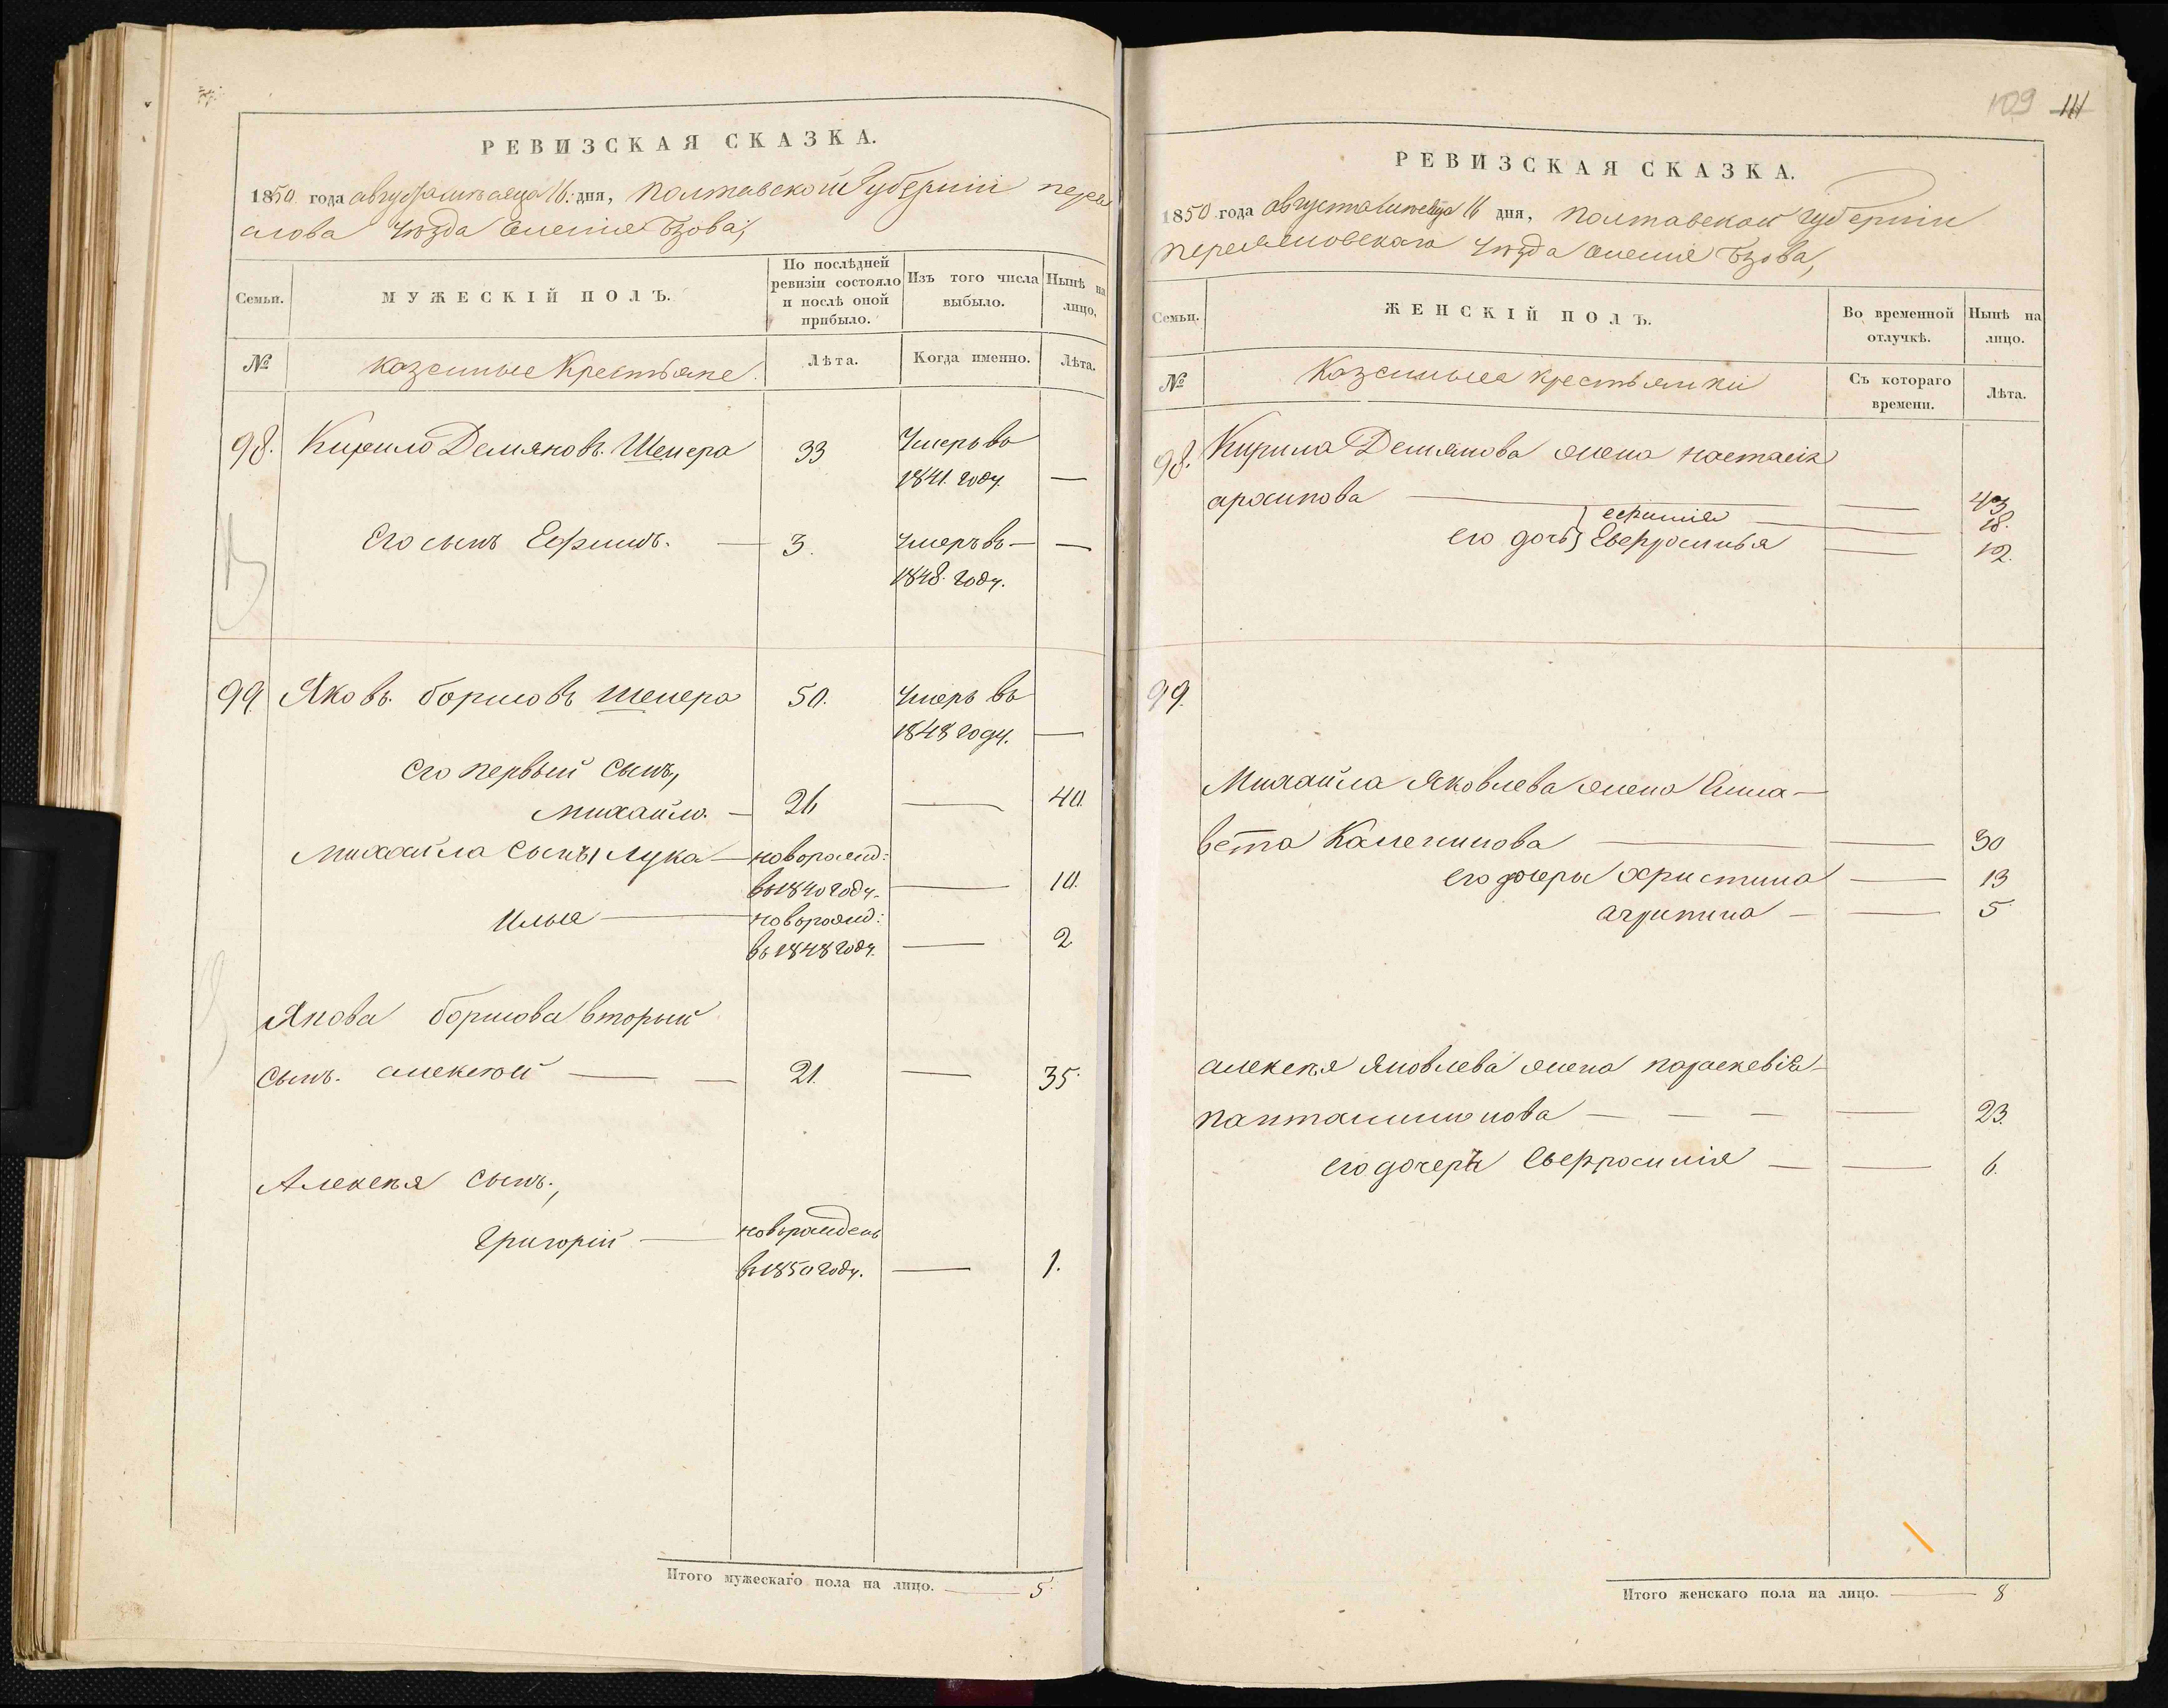 РЕВИЗСКАЯ СКАЗКА.
1850 года августа месяца 16: дня, Полтавской Губерніи перея
слова уѣзда Бзова,
Семьи.
МУЖЕСКІЙ ПОЛЪ.
По послѣдней ревизіи состояло и послѣ оной прибыло.
Изъ того числа выбыло.
Нынѣ на лицо,
№
казенные Крестьяне.
Лѣта.
Когда именно.
Лѣта.
98. Кирило Демяновъ Шепера 33 Умеръ во
1841. году. —
Его сынъ Ефимъ. — 3. умеръ въ — —
1848. году.
99 Яковъ. борисовъ шепера 50. Умеръ въ
1848 году. —
Его первый сынъ,
михайло. — 26 — 40.
михайла сынъ, лука — новорожд:
въ 1840 году. — 10.
Илья — новорожд:
въ 1848 году. — 2
Якова борисова вторый
сынъ. алексѣй — — 21. — 35.
Алексѣя сынъ.,
Григорій — новорожденъ
въ 1850 году. — 1.
Итого мужескаго пола на лицо. — 5.
109 111
РЕВИЗСКАЯ СКАЗКА.
1850 года августа месяца 16 дня, полтавской губерніи
переяславскаго уѣзда Бзова,
Семьи.
ЖЕНСКІЙ ПОЛЪ.
Во временной отлучкѣ.
Нынѣ на лицо.
№
Казенныеа крестьянки
Съ котораго времени.
Лѣта.
98. Кирила Демянова жена настасія
архипова — — 43
ефимія — — 18.
его дочь} Евфросинья — 12.
99.
Михайла Яковлева жена Елиса-
вета — — 30
его дочери христина — 13
агрипина — — 5
алексѣя Яковлева жена параскевія-
пантилимонова — — — — 23.
его дочерь Евфросинія — — 6.
Итого женскаго пола на лицо. — 8